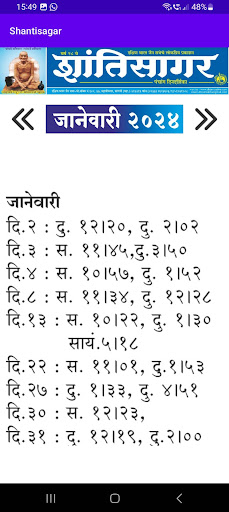 15:49
48%
Shantisagar
शांतिसागर
जानेवारी २०२४
जानेवारी
दि.२ : दु. १२।२०, दु. २।०२
दि.३ : स. ११।४५,दु.३।५०
दि.४ : स. १०।५७, दु. १।५२
दि.८ : स. ११।३४, दु. १२।२८
दि.१३ : स. १०।२२, दु. १।३०
सायं.५।१८
दि.२२ : स. ११।०१, दु.१।५३
दि.२७ : दु. १।३३, दु. ४।५१
दि.३० : स. १२।२३,
दि.३१ : दु. १२।१९, दु.२।००